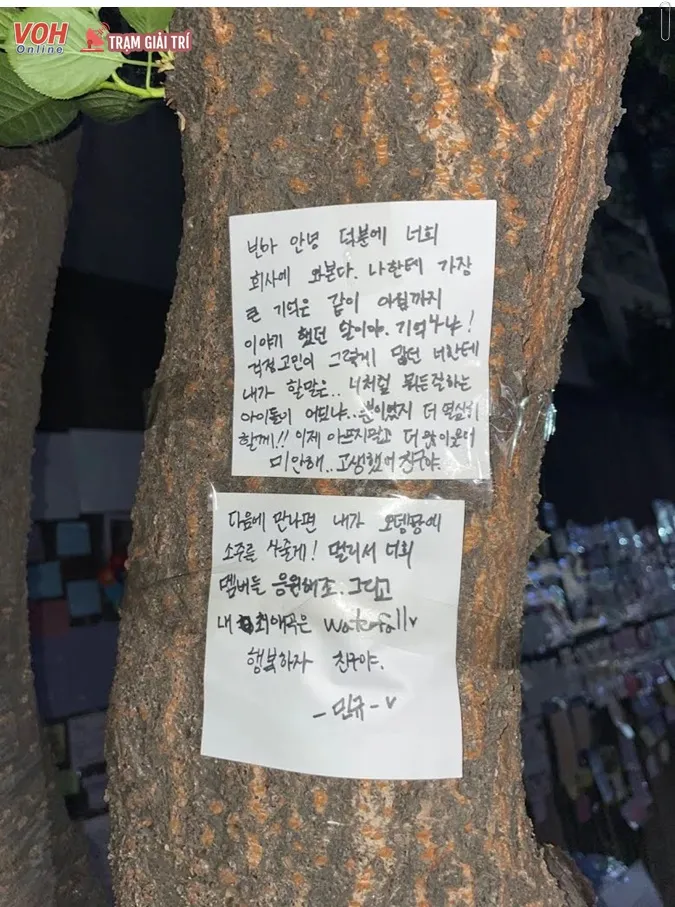 VOH
Online
TRẠM GIẢI TRÍ
빈아 안녕 덕분에 너희
회사에 와본다. 나한테 가장
큰 기억은 같이 아침까지
이야기 했던 날이야. 기억나냐!
걱정고민이 그렇게 많던 너한테
내가 할말은.. 너처럼 뭐든잘하는
아이돌이 어딨냐.. 뿐이었지 더 열심히
할게!! 이제 아프지말고 더 많이웃어
미안해.. 고생했어 친구야.
다음에 만나면 내가 오뎅탕에
소주를 사줄게! 멀리서 너희
멤버들 응원해조. 그리고
내 최애곡은 waterfall♥
행복하자 친구야.
- 민규 - ♥